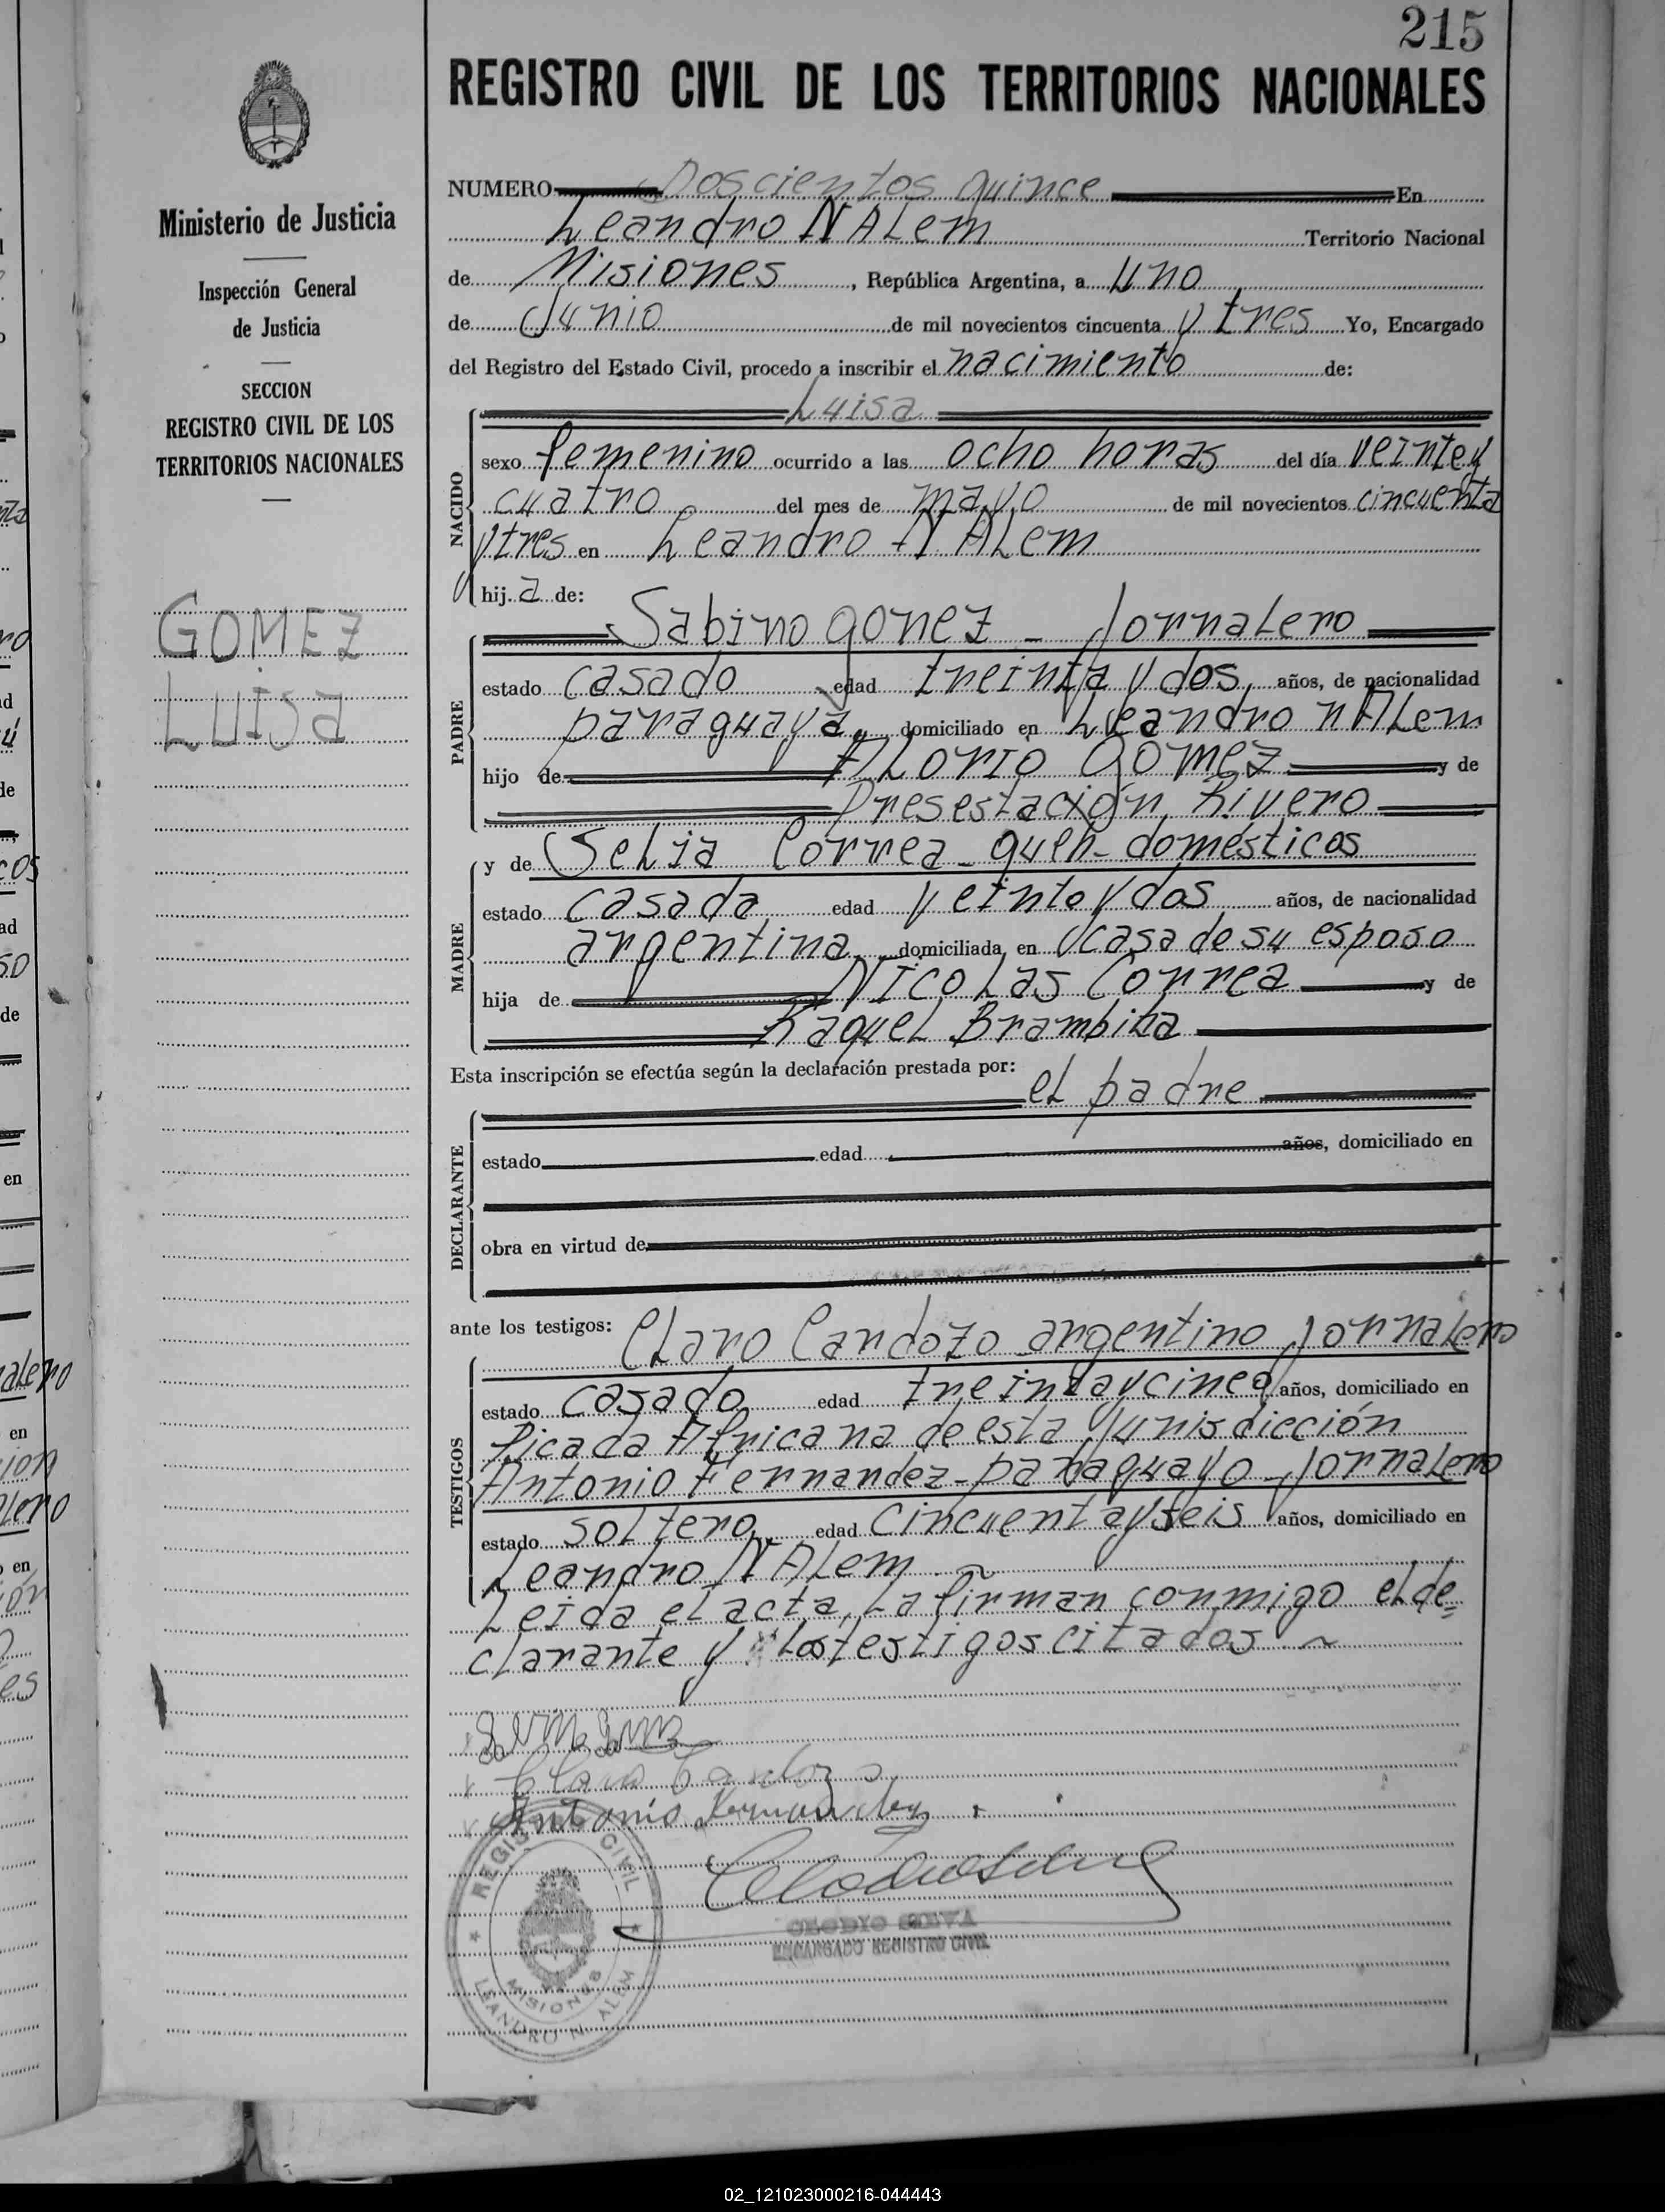 215
REGISTRO CIVIL DE LOS TERRITORIOS NACIONALES
Ministerio de Justicia
Inspección General
de Justicia
SECCION
REGISTRO CIVIL DE LOS
TERRITORIOS NACIONALES
GOMEZ
Luisa
NUMERO Doscientos quince En
Leandro N ALem Territorio Nacional
de Misiones, República Argentina, a uno
de Junio de mil novecientos cincuenta y tres Yo, Encargado
del Registro del Estado Civil, procedo a inscribir el nacimiento de:
NACIDO
Luisa
sexo femenino ocurrido a las ocho horas del día veinte y
cuatro del mes de mayo de mil novecientos cincuenta
y tres en Leandro N ALem
hij a de:
PADRE
Sabino gonez - Jornalero
estado casado edad treinta y dos años, de nacionalidad
paraguaya domiciliado en Leandro n ALem
hijo de Gomez y de
Rivero
MADRE
y de Selia Correa - queh - domesticos
estado casada edad veinte y dos años, de nacionalidad
argentina domiciliada en casa de su esposo
hija de Nicolas Correa y de
Raquel
Esta inscripción se efectúa según la declaración prestada por:
el padre
DECLARANTE
estado edad años, domiciliado en
obra en virtud de
ante los testigos:
TESTIGOS
Claro Cardozo argentino jornalero
estado casado edad treinta y cinco años, domiciliado en
Picada Africana de esta Jurisdicción
Antonio Fernandez - paraguayo - jornalero
estado soltero edad cincuenta y seis años, domiciliado en
Leandro N ALem ~
Leida el acta, la firman conmigo el de=
clarante y los testigos citados ~
Claro Cardozo
Antonio Fernandez
CLODIO SILVA
ENCARGADO REGISTRO CIVIL
REGISTRO CIVIL
MISIONES
LEANDRO N. ALEM
02_121023000216-044443